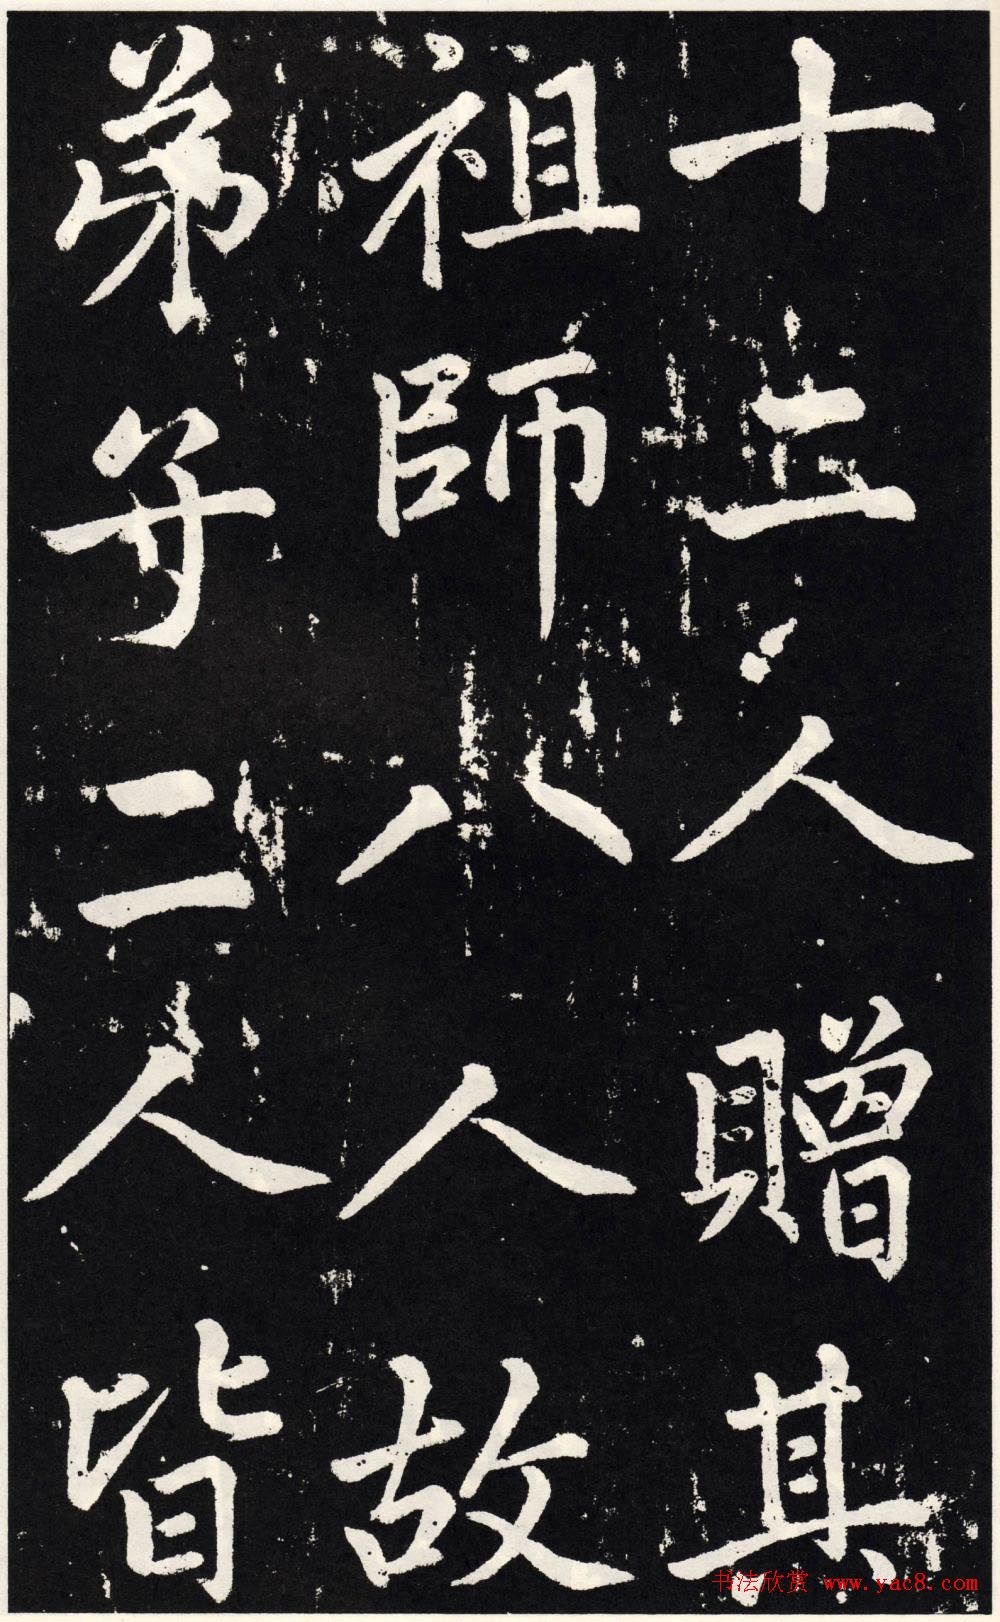 十五人贈其
祖師八人故
弟等二人皆
书法欣赏 www.yac8.com